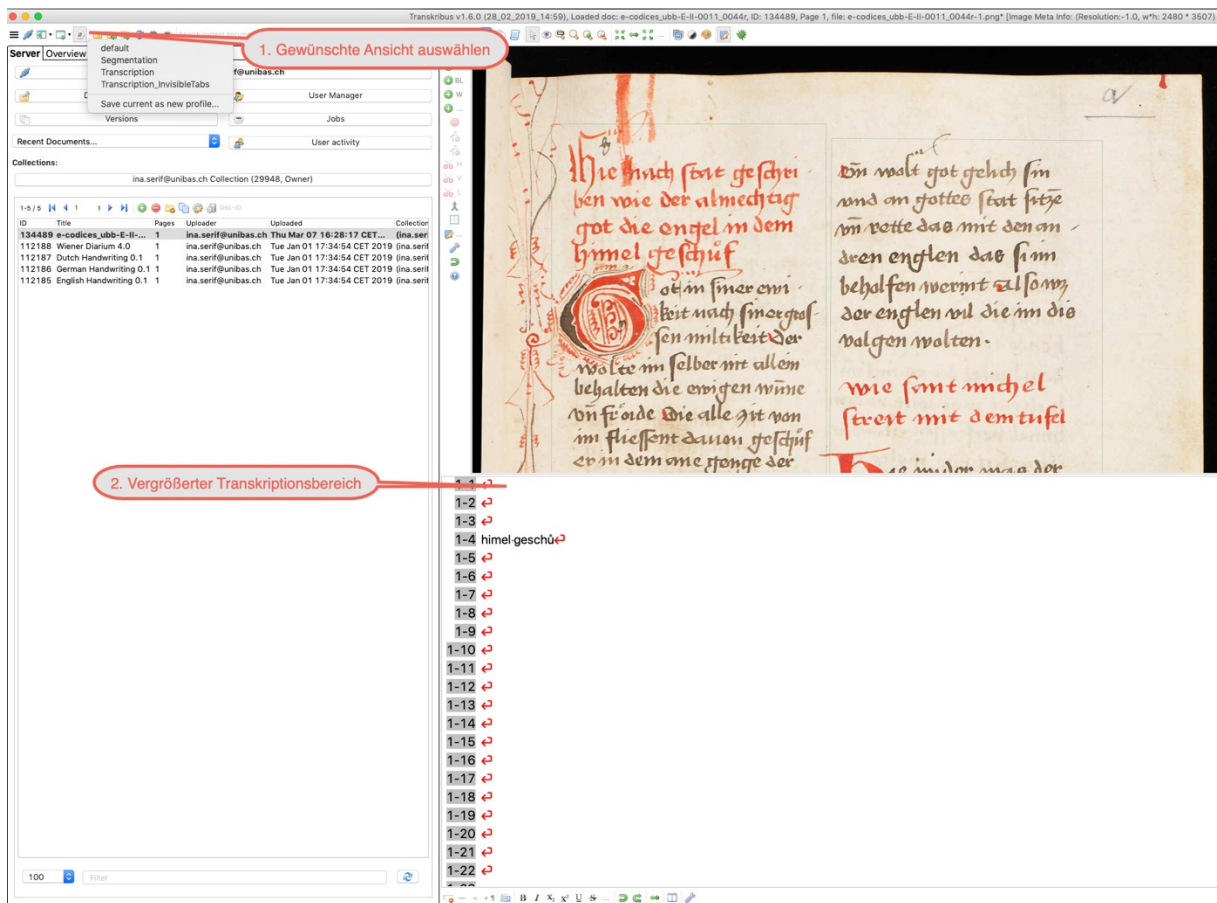 Transkribus v1.6.0 (28_02_2019_14:59), Loaded doc: e-codices_ubb-E-II-0011_0044r, ID: 134489, Page 1, file: e-codices_ubb-E-II-0011_0044r-1.png* [Image Meta Info: (Resolution:-1.0, w*h: 2480 * 3507)
1. Gewünschte Ansicht auswählen
default
Segmentation
Transcription
Transcription_InvisibleTabs
Save current as new profile...
Server Overview
serif@unibas.ch
User Manager
Versions
Jobs
Recent Documents...
User activity
Collections:
ina.serif@unibas.ch Collection (29948, Owner)
1-5 / 5 1 1 Doc-ID
ID Title Pages Uploader Uploaded Collection
134489 e-codices_ubb-E-II-... 1 ina.serif@unibas.ch Thu Mar 07 16:28:17 CET... (ina.seri
112188 Wiener Diarium 4.0 1 ina.serif@unibas.ch Tue Jan 01 17:34:54 CET 2019 (ina.serif
112187 Dutch Handwriting 0.1 1 ina.serif@unibas.ch Tue Jan 01 17:34:54 CET 2019 (ina.serif
112186 German Handwriting 0.1 1 ina.serif@unibas.ch Tue Jan 01 17:34:54 CET 2019 (ina.serif
112185 English Handwriting 0.1 1 ina.serif@unibas.ch Tue Jan 01 17:34:54 CET 2019 (ina.serif
100 Filter
BL
W
H
V
L
a
Hie nach stat geschri
ben wie der almechtig
got die engel in dem
himel geschůf
Got in siner ewi
keit nach siner gros
sen miltikeit der
wolte im selber nit allein
behalten die ewigen wũne
vñ fröide die alle zit von
im fliessent dauon geschůf
er in dem ane genge der
vñ wolt got gelich sin
vnd an gottes stat sitzē
vñ rette das mit den an
dren englen das si im
behulfen werint also wz
der englen vil die im dis
volgen wolten.
wie sant michel
streit mit dem tufel
2. Vergrößerter Transkriptionsbereich
1-1
1-2
1-3
1-4 himel·geschů
1-5
1-6
1-7
1-8
1-9
1-10
1-11
1-12
1-13
1-14
1-15
1-16
1-17
1-18
1-19
1-20
1-21
1-22
B I X₂ X² U S ...